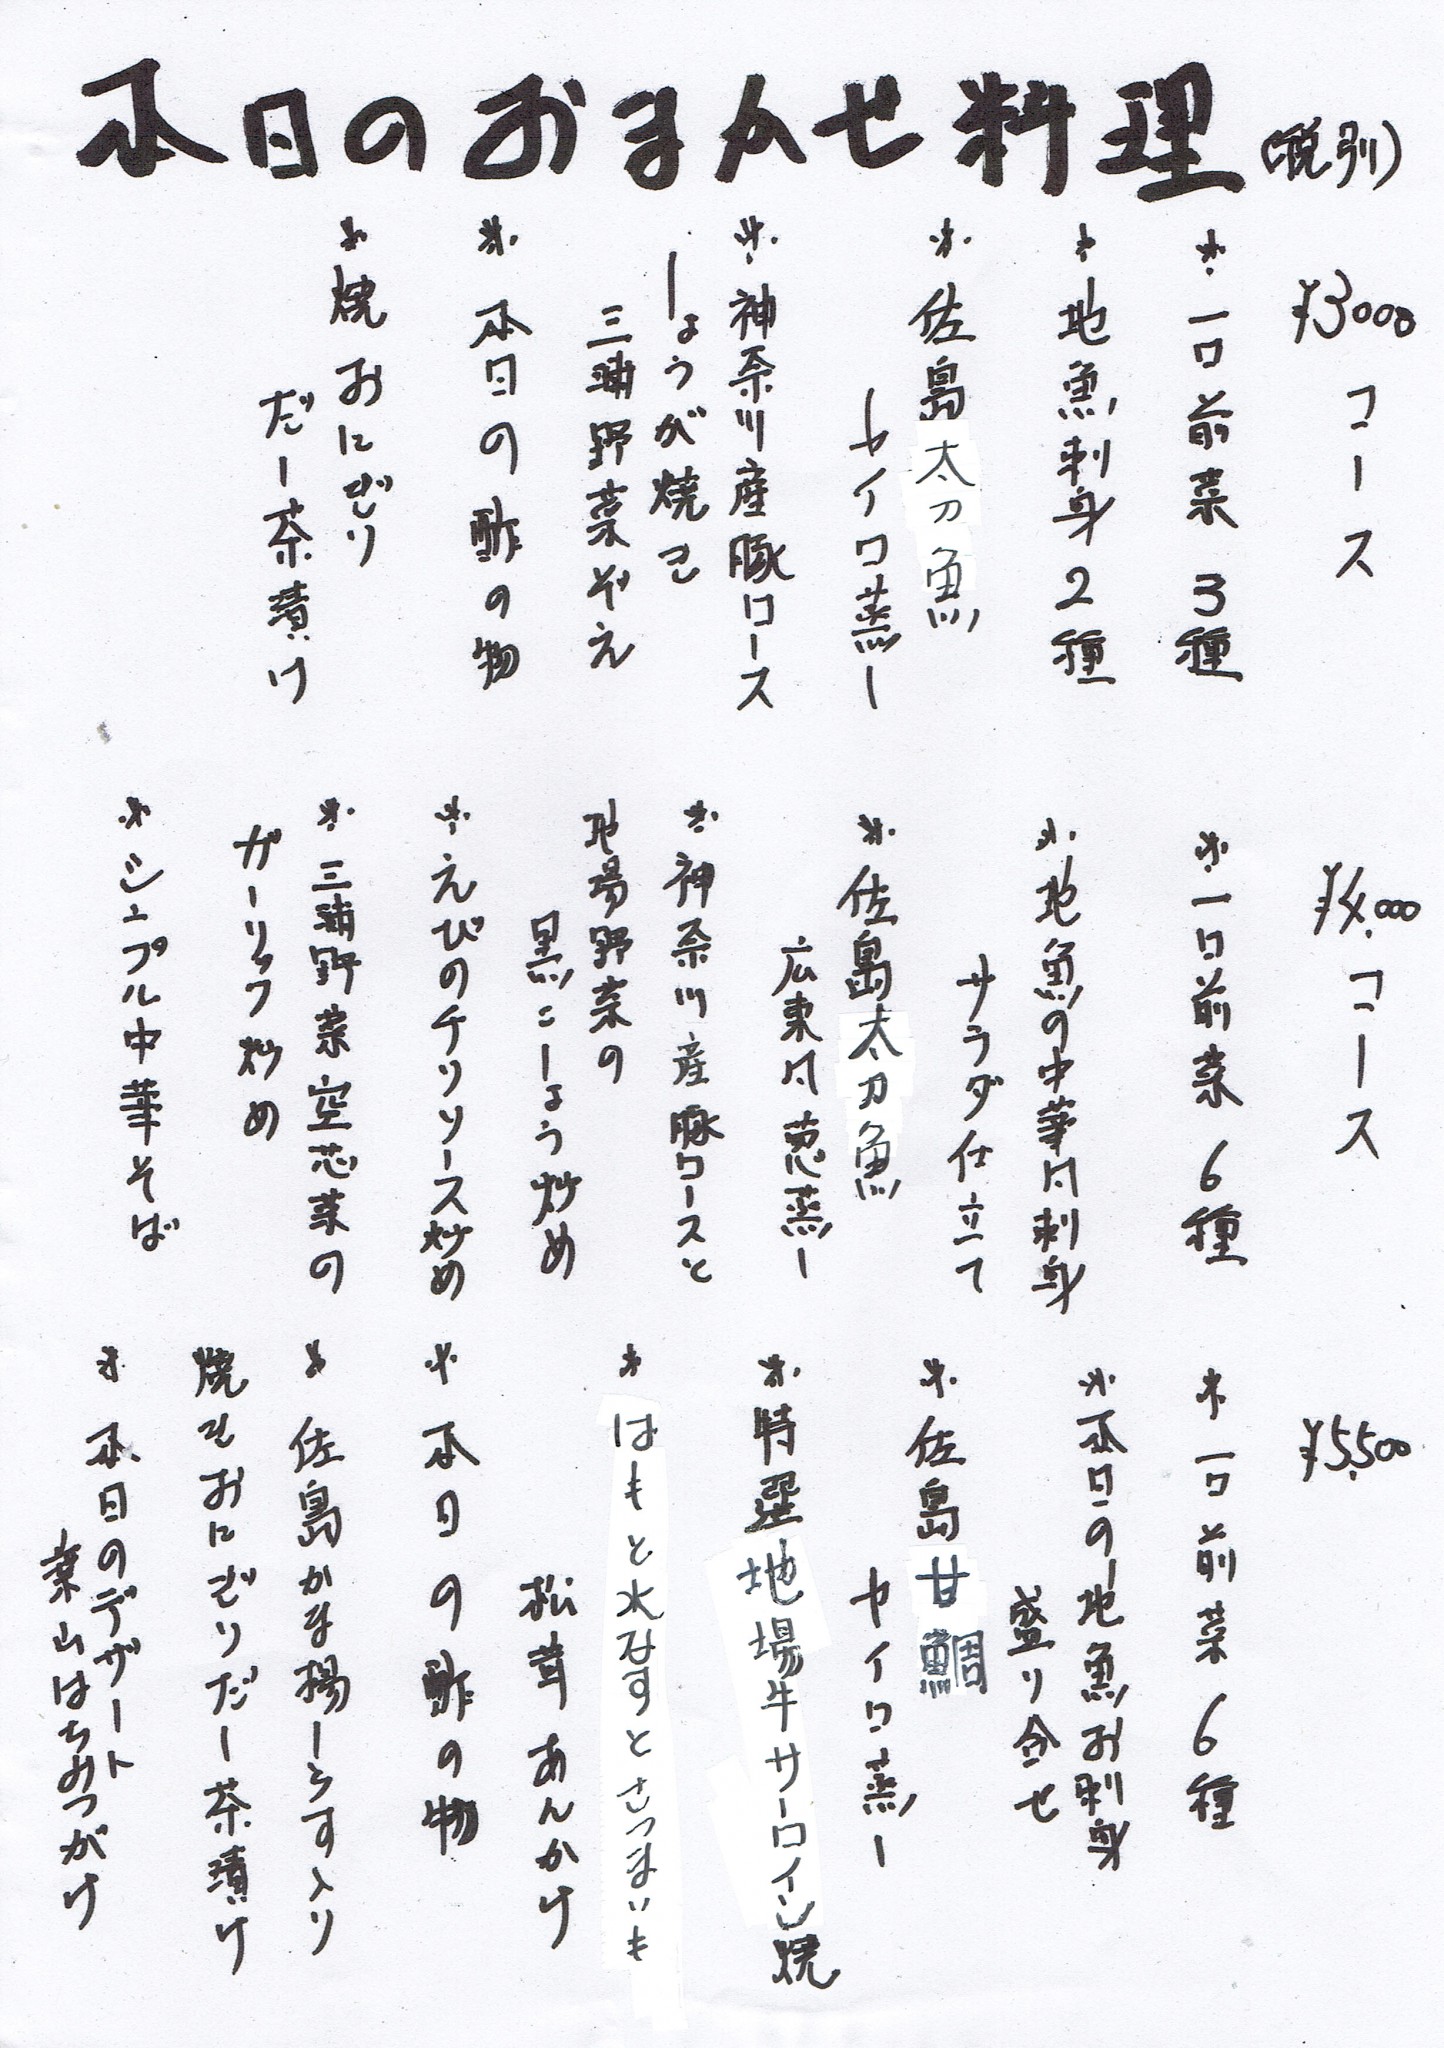 本日のおまかせ料理(税別)
¥3000 コース
*一口前菜 3種
*地魚刺身2種
*佐島太刀魚
セイロ蒸し
*神奈川産豚ロース
しょうが焼き
三浦野菜ぞえ
*本日の酢の物
*焼おにぎり
だし茶漬け
¥4,000コース
*一口前菜 6種
*地魚の中華風刺身
サラダ仕立て
*佐島太刀魚
広東風葱蒸し
*神奈川産豚ロースと
地場野菜の
黒こしょう炒め
*えびのチリソース炒め
*三浦野菜空芯菜の
ガーリック炒め
*シンプル中華そば
¥5,500
*一口前菜 6種
*本日の地魚お刺身
盛り合せ
*佐島甘鯛
セイロ蒸し
*特選地場牛サーロイン焼
*はもと水なすとさつまいも
松茸あんかけ
*本日の酢の物
*佐島かま揚しらす入り
焼きおにぎりだし茶漬け
*本日のデザート
葉山はちみつがけ